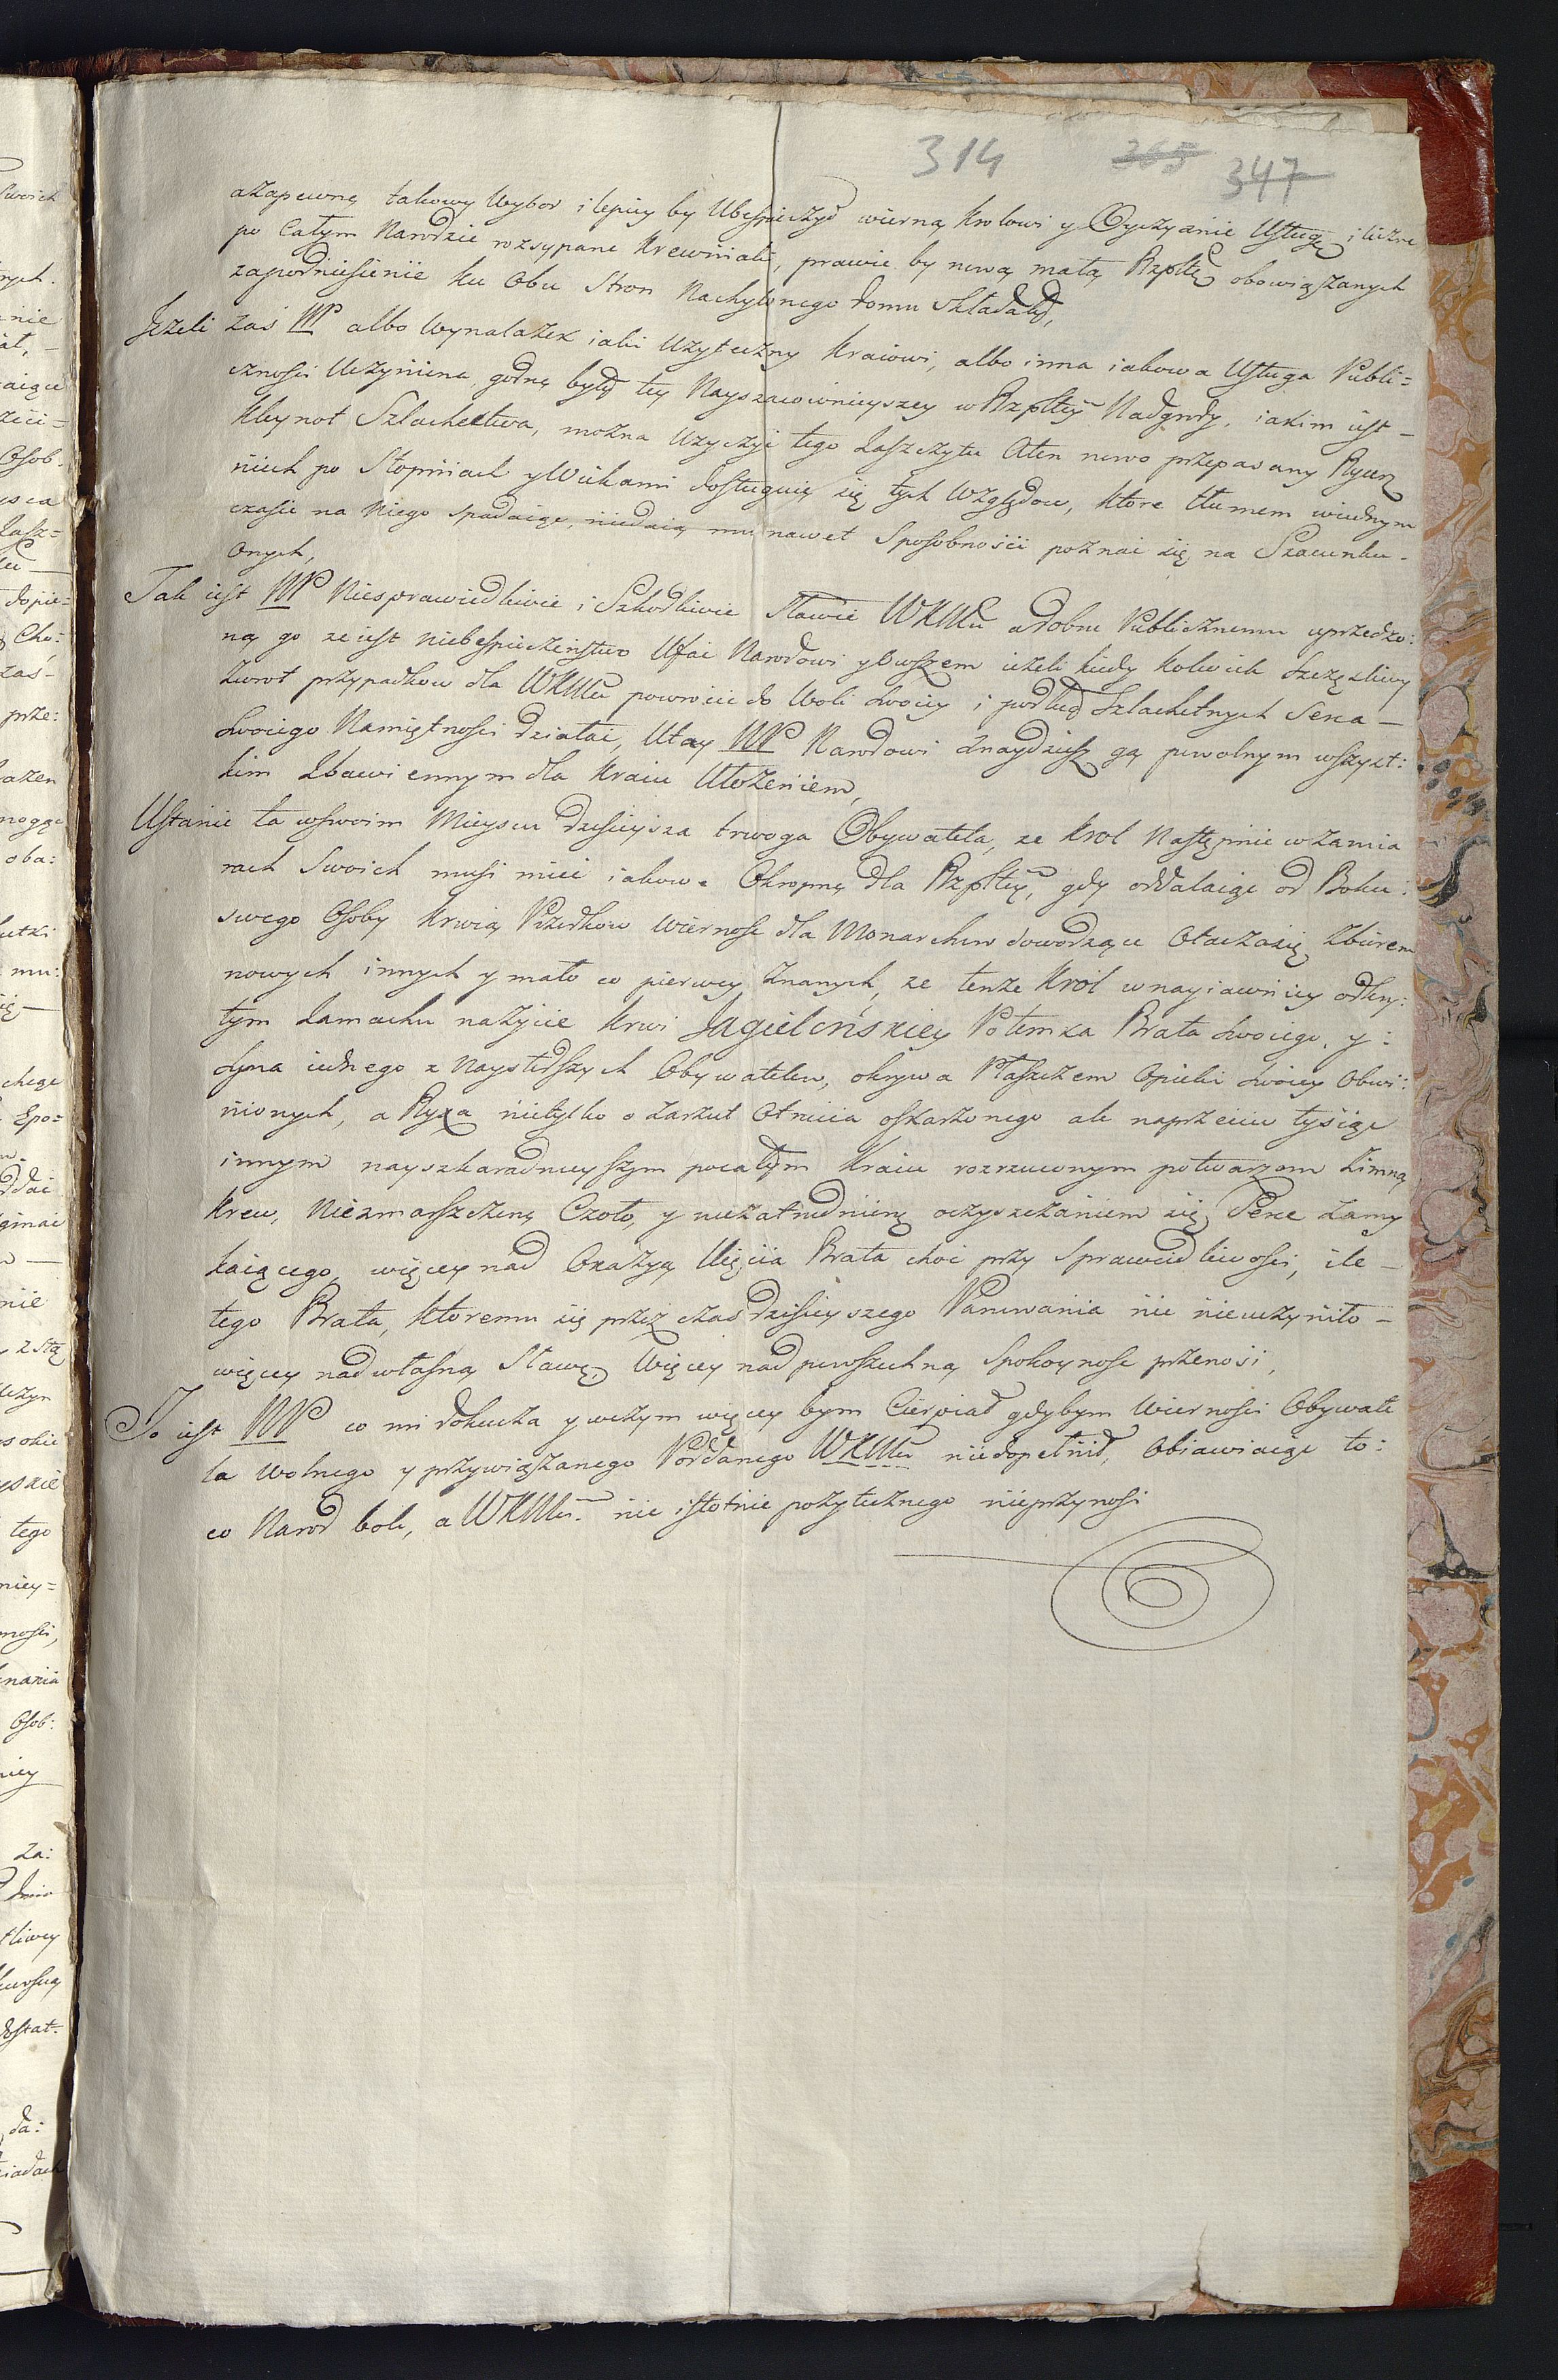 314 365 347
azapewnę takowy Wybor i lepiey by Ubespieczył wierną Krolowi y Oyczyznie Usługę i liczne
po Całym Narodzie rozsypane Krewniaki, prawie by nową małą Rzpltę obowiązanych
zapodniesienie ku Obu Stron Nachylonego domu składały,
Jeżeli zaś NP albo Wynalazek iaki Uzyteczny Kraiowi, albo inna iakowa Usługa Publi=
czności Uczyniona, godną były tey Nayszacownieyszey w Rzpltey Nadgrody, iakim iest –
Kleynot Szlachectwa, można Uzyczyć tego Zaszczytu Aten nowo przepasany Rycerz
niech po Stopniach y Wiekami dosługuię się tych Względow, ktore tłumem wiednym
czasie na Niego spadaiąc, niedaią mu nawet Sposobności poznać się na Szacunku
Onych,
Tak iest NP Niesprawiedliwie i Szkodliwie Sławie WKMci adobru Publicznemu uprzedzo:
ną go ze iest niebespieczeństwo Ufać Narodowi ybwszem ieżeli kiedy kolwiek szczęśliwy
zwrot przypadkow dla WKMci powroci do Woli swoiey i podług szlachetnych Serca –
swoiego Namiętności działać, Ufay NP Narodowi znaydziesz gą powolnym wszyst:
kim zbawiennym dla Kraiu Ułożeniem,
Ustanie ta wswoim Mieyscu dzisieysza trwoga Obywatela, ze Krol Następnie wzamia
rach Swoich musi mieć iakowe Okropną dla Rzpltey, gdy oddalaiąc od Boku
swego Osoby Krwią Przodkow Wierność dla Monarchow dowodzące Otacza się Zbiorem
nowych innych y mało co pierwey Znanych, ze tenze Krol wnayiawniey odkry:
tym Zamachu nażycie Krwi Jagielońskiey Potomka Brata swoiego, y:
Syna iednego z Naystarszych Obywatelow, okrywa Płaszczem Opieki swoiey Obwi:
nionych, a Ryxa nietylko o zarzut Otrucia oskarżonego ale naprzeciw tysiąc
innym nayszkaradnieyszym pocałym Kraiu rozrzuconym potwarzom Zimną
Krew, Niezmarszczone Czoło, y niezatrudnienę oczyszczaniem się Serce Zamy
kaiącego, więcey nad Okazyą Uięcia Brata choć przy Sprawiedliwości, ile –
tego Brata, Któremu się przez czas dzisieyszego Panowania nic nieuczyniło –
więcey nad własną Sławę, Więcey nad powszechną Spokoyność przenosi,
To iest NP co mi dokucza y wczym więcey bym Cierpiał gdybym Wierności Obywate
la Wolnego y przywiązanego Poddanego WKMci niedopełnił, Obiawiaiąc to:
co Narod boli, a WKMci nic istotnie pożytecznego nieprzynosi